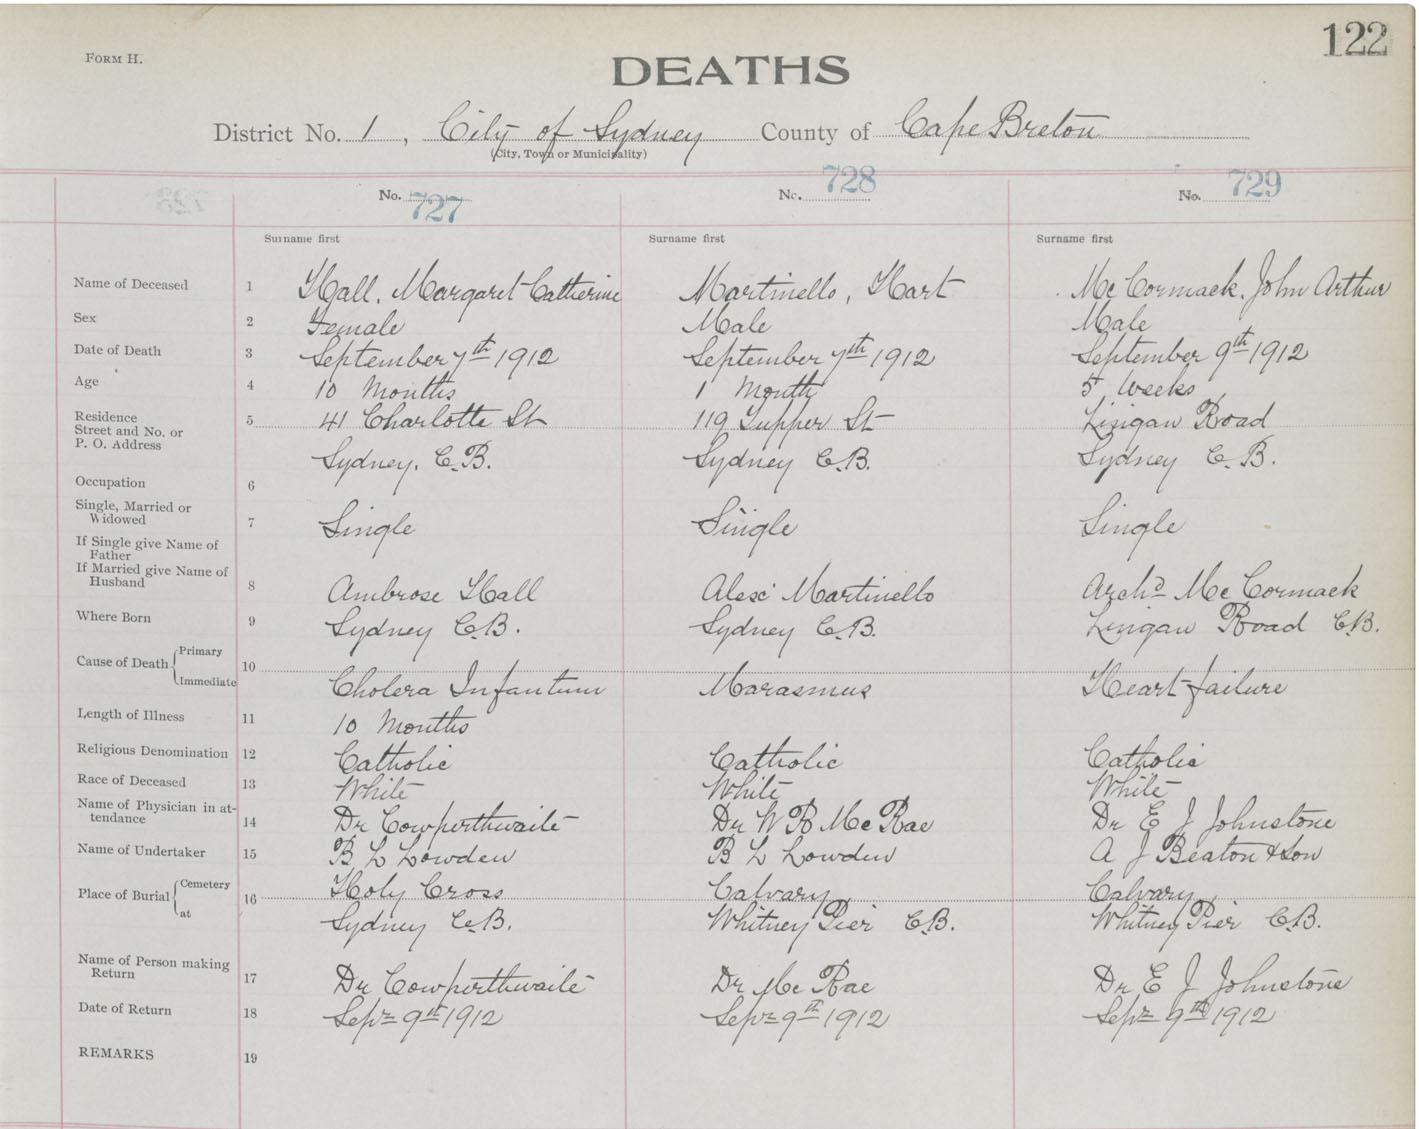 122
FORM H.
DEATHS
District No. 1, City of Sydney County of Cape Breton
(City, Town or Municipality)
No. 727 No. 728 No. 729
Surname first Surname first Surname first
Name of Deceased 1 Hall, Margaret Catherine Martinello, Hart Mc Cormack, John Arthur
Sex 2 Female Male Male
Date of Death 3 September 7th 1912 September 7th 1912 September 9th 1912
Age 4 10 Months 1 Month 5 Weeks
Residence
Street and No. or 5 41 Charlotte St 119 Tupper St Lingan Road
P. O. Address
Sydney, C.B. Sydney C.B. Sydney C.B.
Occupation 6
Single, Married or
Widowed 7 Single Single Single
If Single give Name of
Father
If Married give Name of
Husband 8 Ambrose Hall Alex Martinello Archd Mc Cormack
Where Born 9 Sydney C.B. Sydney C.B. Lingan Road C.B.
Cause of Death Primary 10
Immediate Cholera Infantum Marasmus Heart failure
Length of Illness 11 10 Months
Religious Denomination 12 Catholic Catholic Catholic
Race of Deceased 13 White White White
Name of Physician in at-
tendance 14 Dr Cowperthwaite Dr W R Mc Rae Dr E J Johnstone
Name of Undertaker 15 B L Lowden B L Lowden A J Beaton & Son
Place of Burial Cemetery 16 Holy Cross Calvary Calvary
at Sydney C.B. Whitney Pier C.B. Whitney Pier C.B.
Name of Person making
Return 17 Dr Cowperthwaite Dr Mc Rae Dr E J Johnstone
Date of Return 18 Sepr 9th 1912 Sepr 9th 1912 Sepr 9th 1912
REMARKS 19